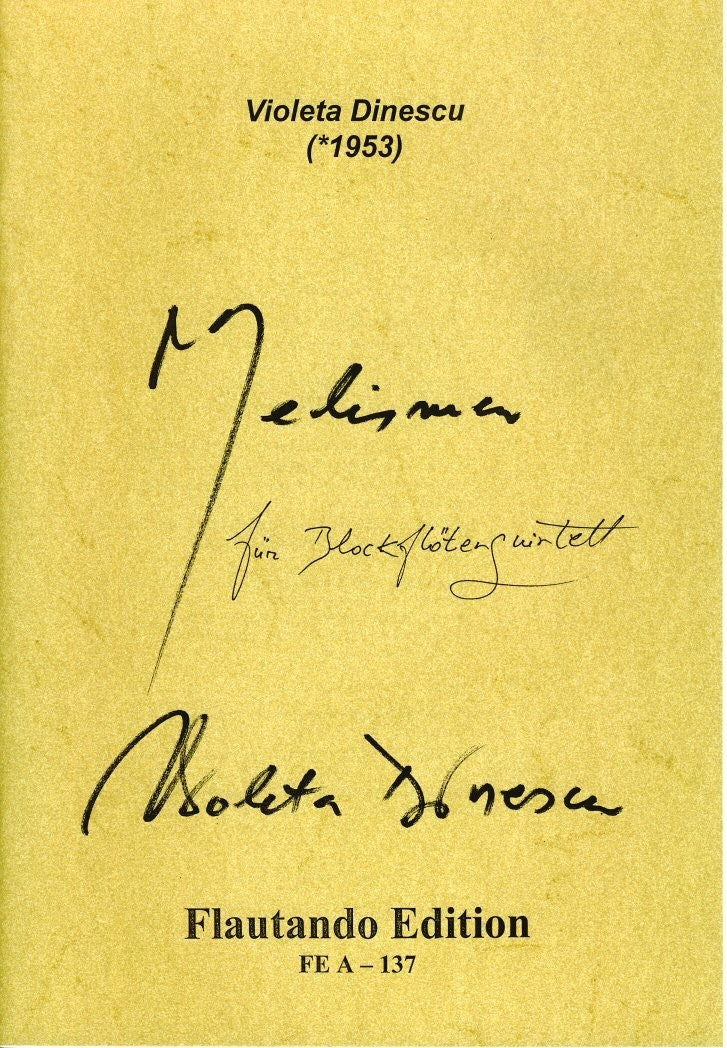 Violeta Dinescu
(*1953)
Melismen
für Blockflötenquintett
Violeta Dinescu
Flautando Edition
FE A – 137